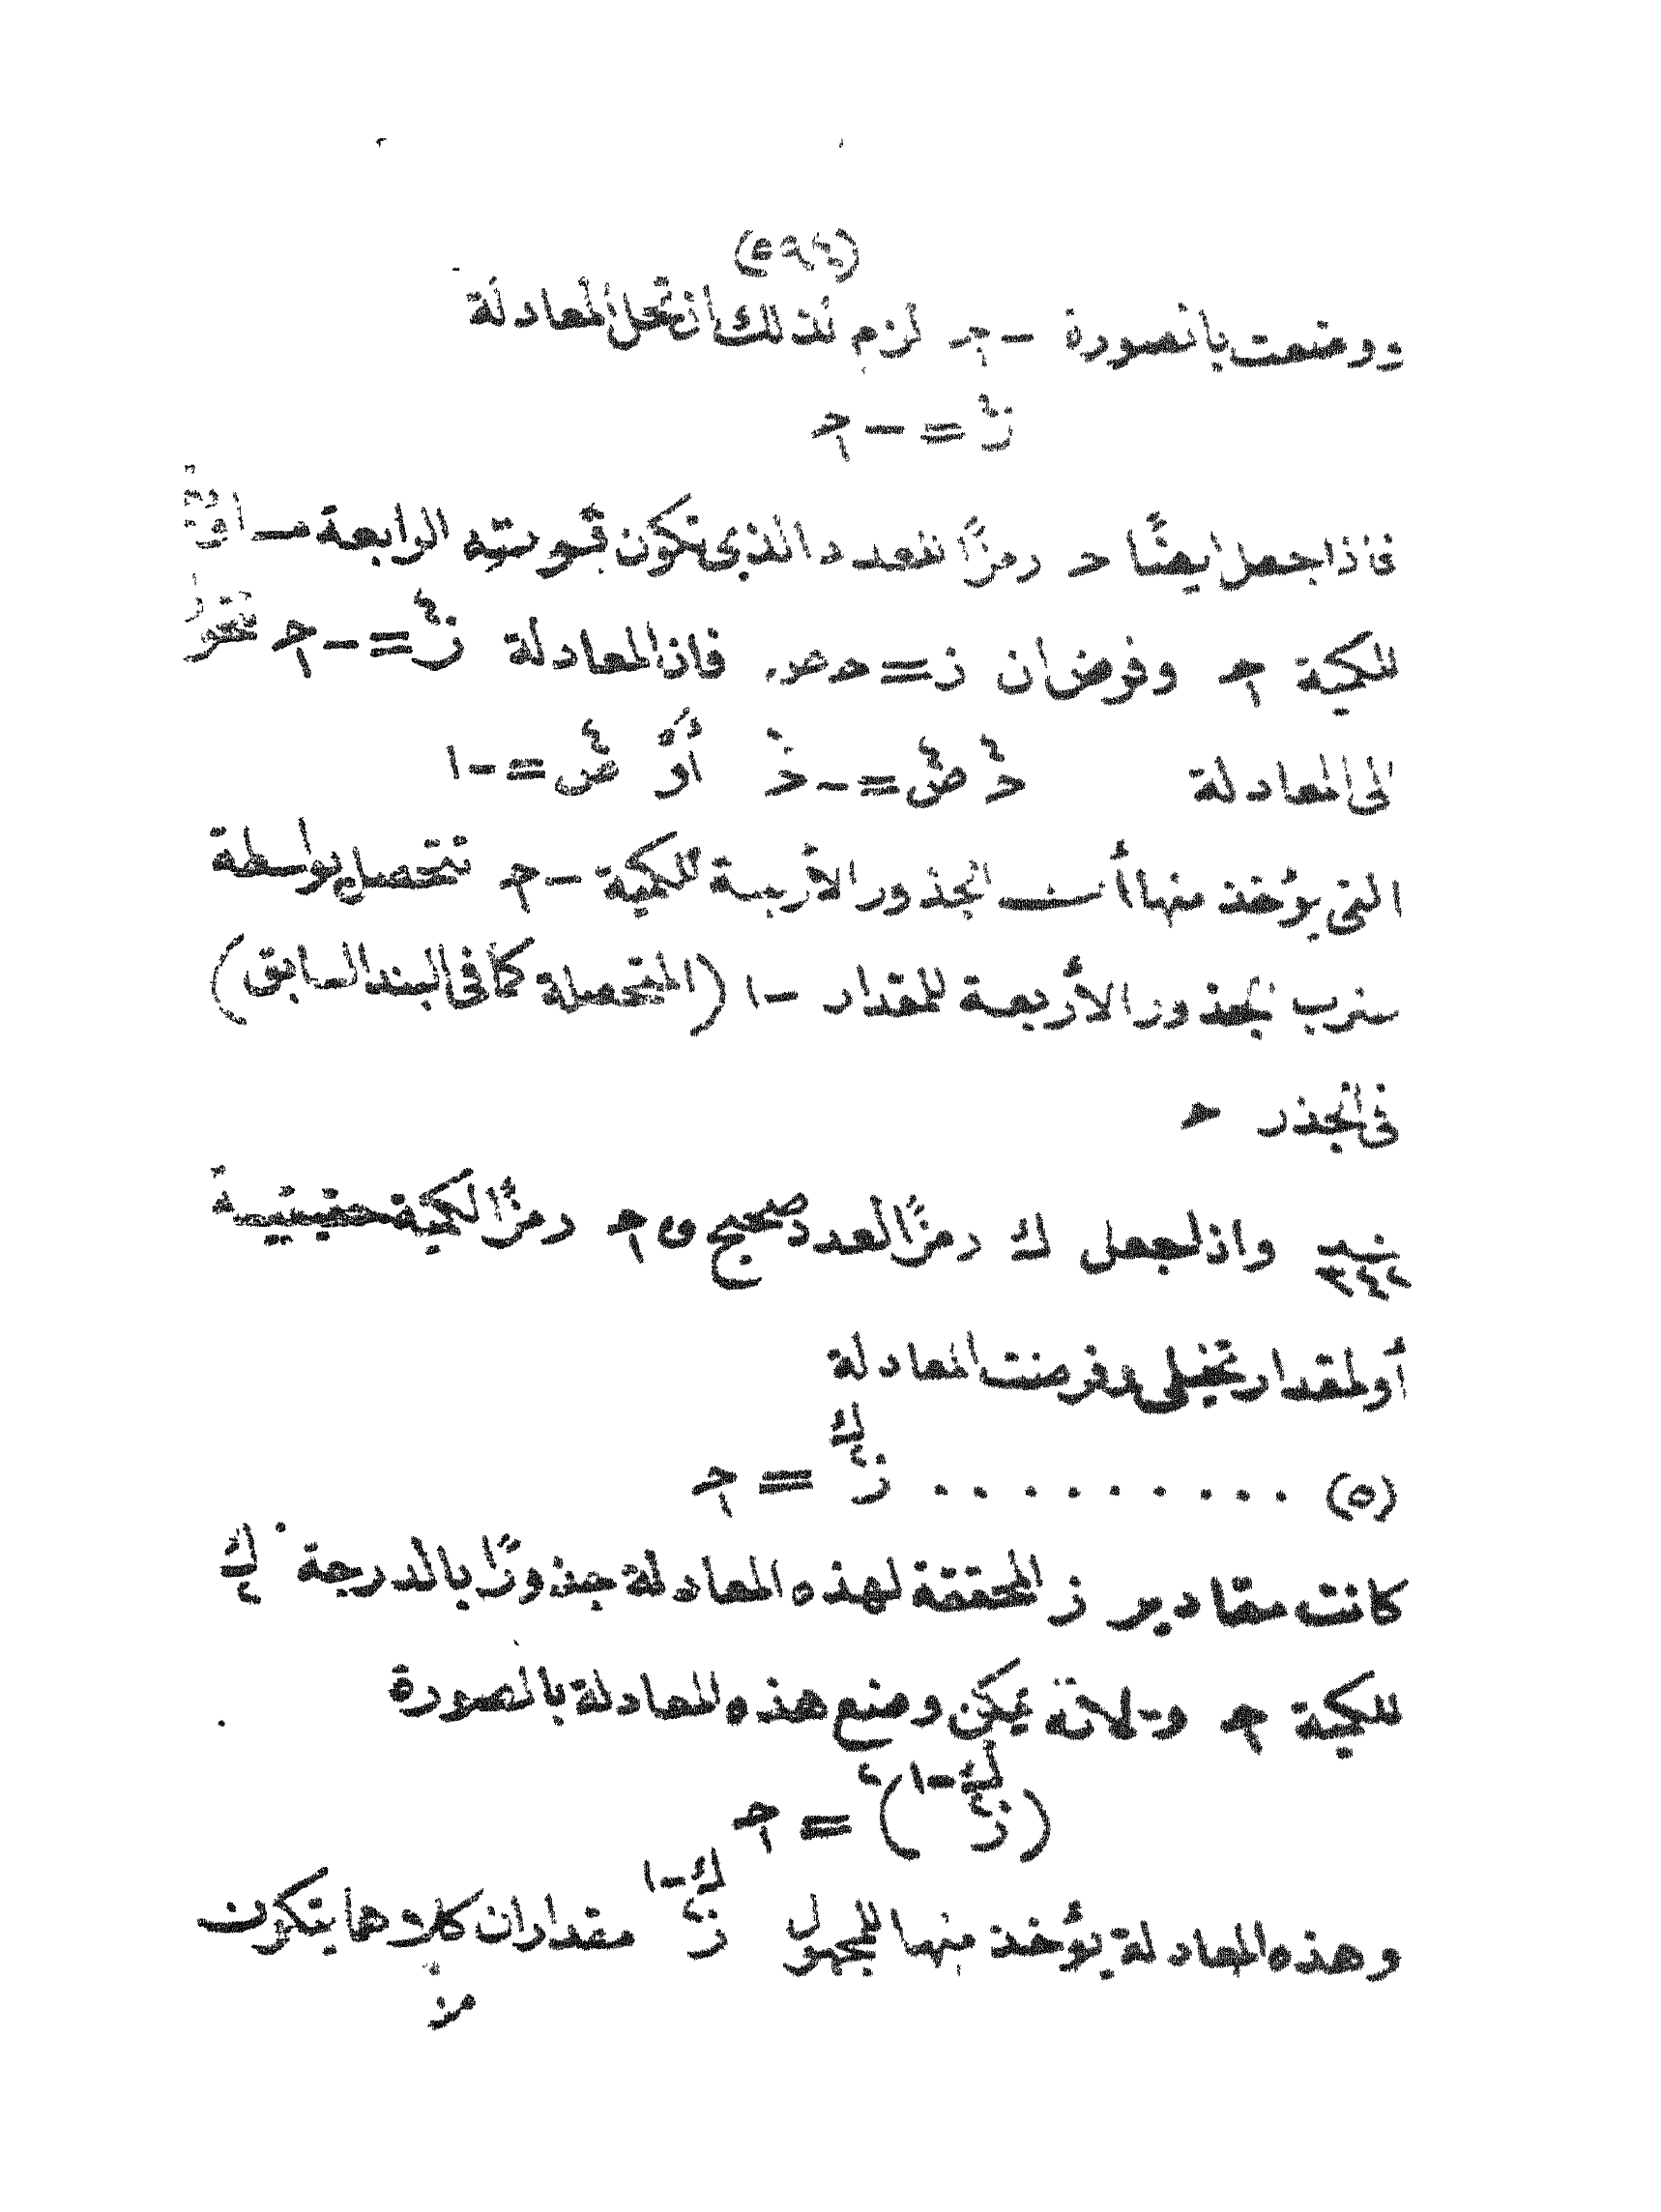 ووضعت بالصورة - حـ لزم لذلك ان تحل المعادلة
ز٤ = - حـ
فاذا جعل ايضًا د رمزًا للعدد الذى تكون قوته الرابعة مساوية
للكمية حـ وفرض ان ز = د ض فان المعادلة ز٤ = - حـ تتحول
الى المعادلة د٤ ض٤ = - د٤ أو ض٤ = - ١
التى يؤخذ منها أن الجذور الأربعة للكمية - حـ تتحصل بواسطة
ضرب الجذور الأربعة للمقدار - ١ (المتحصلة كما فى البند السابق)
فى الجذر د
بند ٣٤٢ واذا جعل ك رمزًا لعدد صحيح و حـ رمزًا لكمية حقيقية
أو لمقدار تخيلى وفرضت المعادلة
(٥) . . . . . . . . . ز٢ك = حـ
كانت مقادير ز المحققة لهذه المعادلة جذورًا بالدرجة ٢ك
للكمية حـ و يمكن وضع هذه المعادلة بالصورة
(ز٢ك-١)٢ = حـ
وهذه المعادلة يؤخذ منها للمجهول ز٢ك-١ مقداران كلاهما يتكون
من